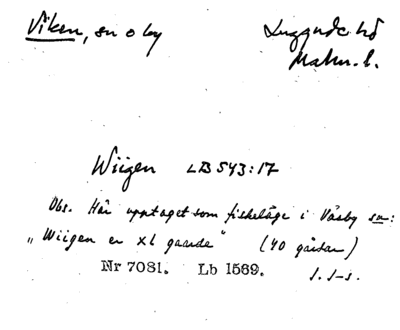 Viken, sn o by
Luggude hd
Malm. l.
Wiigen LB 543:17
Obs. Här upptaget som fiskeläge i Väsby sn:
„Wiigen er XL gaarde" (40 gårdar)
Nr 7081. Lb 1569. J. J-s.